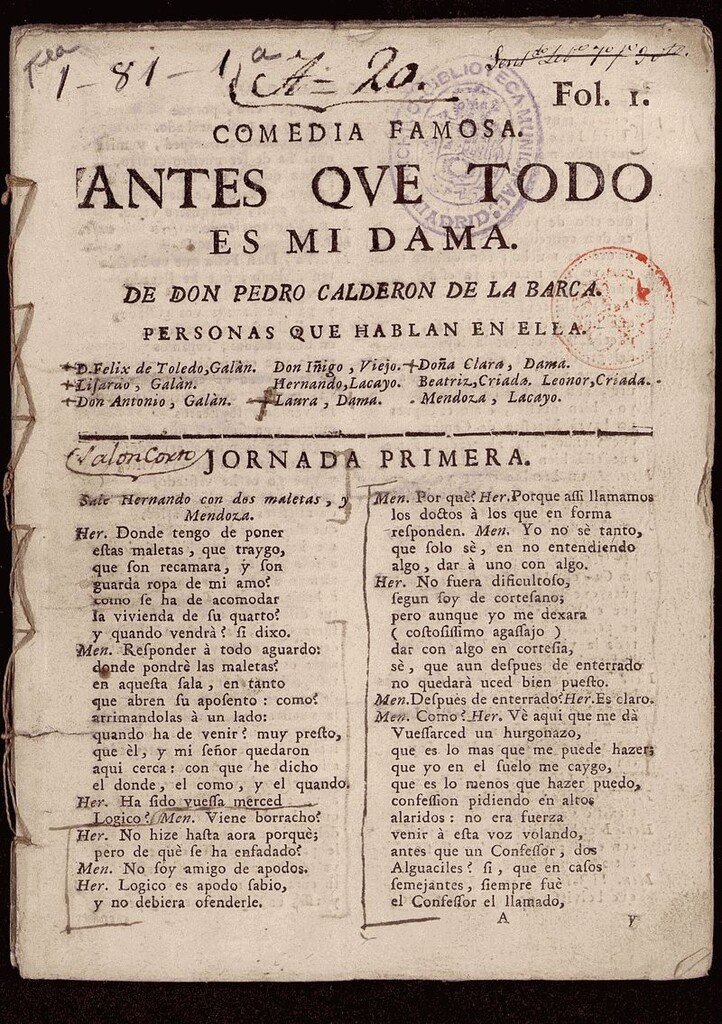 1-81-1ª
A= 20.
BIBLIOTECA MUNICIPAL
MADRID
Fol. 1.
COMEDIA FAMOSA.
ANTES QVE TODO
ES MI DAMA.
DE DON PEDRO CALDERON DE LA BARCA.
PERSONAS QUE HABLAN EN ELLA.
D.Felix de Toledo,Galàn. Don Iñigo, Viejo. Doña Clara, Dama.
Lisardo, Galàn. Hernando,Lacayo. Beatriz,Criada. Leonor,Criada.
Don Antonio, Galàn. Laura, Dama. Mendoza, Lacayo.
Salon Corto
JORNADA PRIMERA.
Sale Hernando con dos maletas, y
Mendoza.
Her. Donde tengo de poner
eſtas maletas, que traygo,
que ſon recamara, y ſon
guarda ropa de mi amo?
como ſe ha de acomodar
la vivienda de ſu quarto?
y quando vendrà? ſi dixo.
Men. Reſponder à todo aguardo:
donde pondrè las maletas?
en aqueſta ſala, en tanto
que abren ſu apoſento: como?
arrimandolas à un lado:
quando ha de venir? muy preſto,
que èl, y mi ſeñor quedaron
aqui cerca: con que he dicho
el donde, el como, y el quando.
Her. Ha ſido vueſſa merced
Logico? Men. Viene borracho?
Her. No hize haſta aora porquè;
pero de què ſe ha enfadado?
Men. No ſoy amigo de apodos.
Her. Logico es apodo ſabio,
y no debiera ofenderle.
Men. Por què? Her. Porque aſſi llamamos
los doctos à los que en forma
reſponden. Men. Yo no sè tanto,
que ſolo sè, en no entendiendo
algo, dar à uno con algo.
Her. No fuera dificultoſo,
ſegun ſoy de corteſano;
pero aunque yo me dexara
( coſtoſiſſimo agaſſajo )
dar con algo en corteſia,
sè, que aun deſpues de enterrado
no quedarà uced bien pueſto.
Men. Deſpuès de enterrado? Her. Es claro.
Men. Como? Her. Vè aqui que me dà
Vueſſarced un hurgonazo,
que es lo mas que me puede hazer;
que yo en el ſuelo me caygo,
que es lo menos que hazer puedo,
confeſſion pidiendo en altos
alaridos: no era fuerza
venir à eſta voz volando,
antes que un Confeſſor, dos
Alguaciles? ſi, que en caſos
ſemejantes, ſiempre fuè
el Confeſſor el llamado,
A y